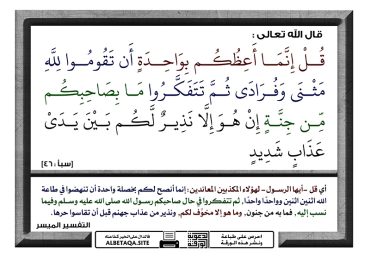 قال الله تعالى :
قُلْ إِنَّمَا أَعِظُكُم بِوَاحِدَةٍ أَن تَقُومُوا لِلَّهِ
مَثْنَى وَفُرَادَى ثُمَّ تَتَفَكَّرُوا مَا بِصَاحِبِكُم
مِّن جِنَّةٍ إِنْ هُوَ إِلَّا نَذِيرٌ لَّكُم بَيْنَ يَدَيْ
عَذَابٍ شَدِيدٍ
[سبأ : ٤٦]
أي قل -أيها الرسول- لهؤلاء المكذبين المعاندين: إنما أنصح لكم بخصلة واحدة أن تنهضوا في طاعة
الله اثنين اثنين وواحدًا واحدًا، ثم تتفكروا في حال صاحبكم رسول الله صلى الله عليه وسلم وفيما
نسب إليه، فما به من جنون، وما هو إلا مخوِّف لكم، ونذير من عذاب جهنم قبل أن تقاسوا حرها.
التفسير الميسر
احرص على طباعة
ونشر هذه الورقة
فالدال على الخير كفاعله
ALBETAQA.SITE